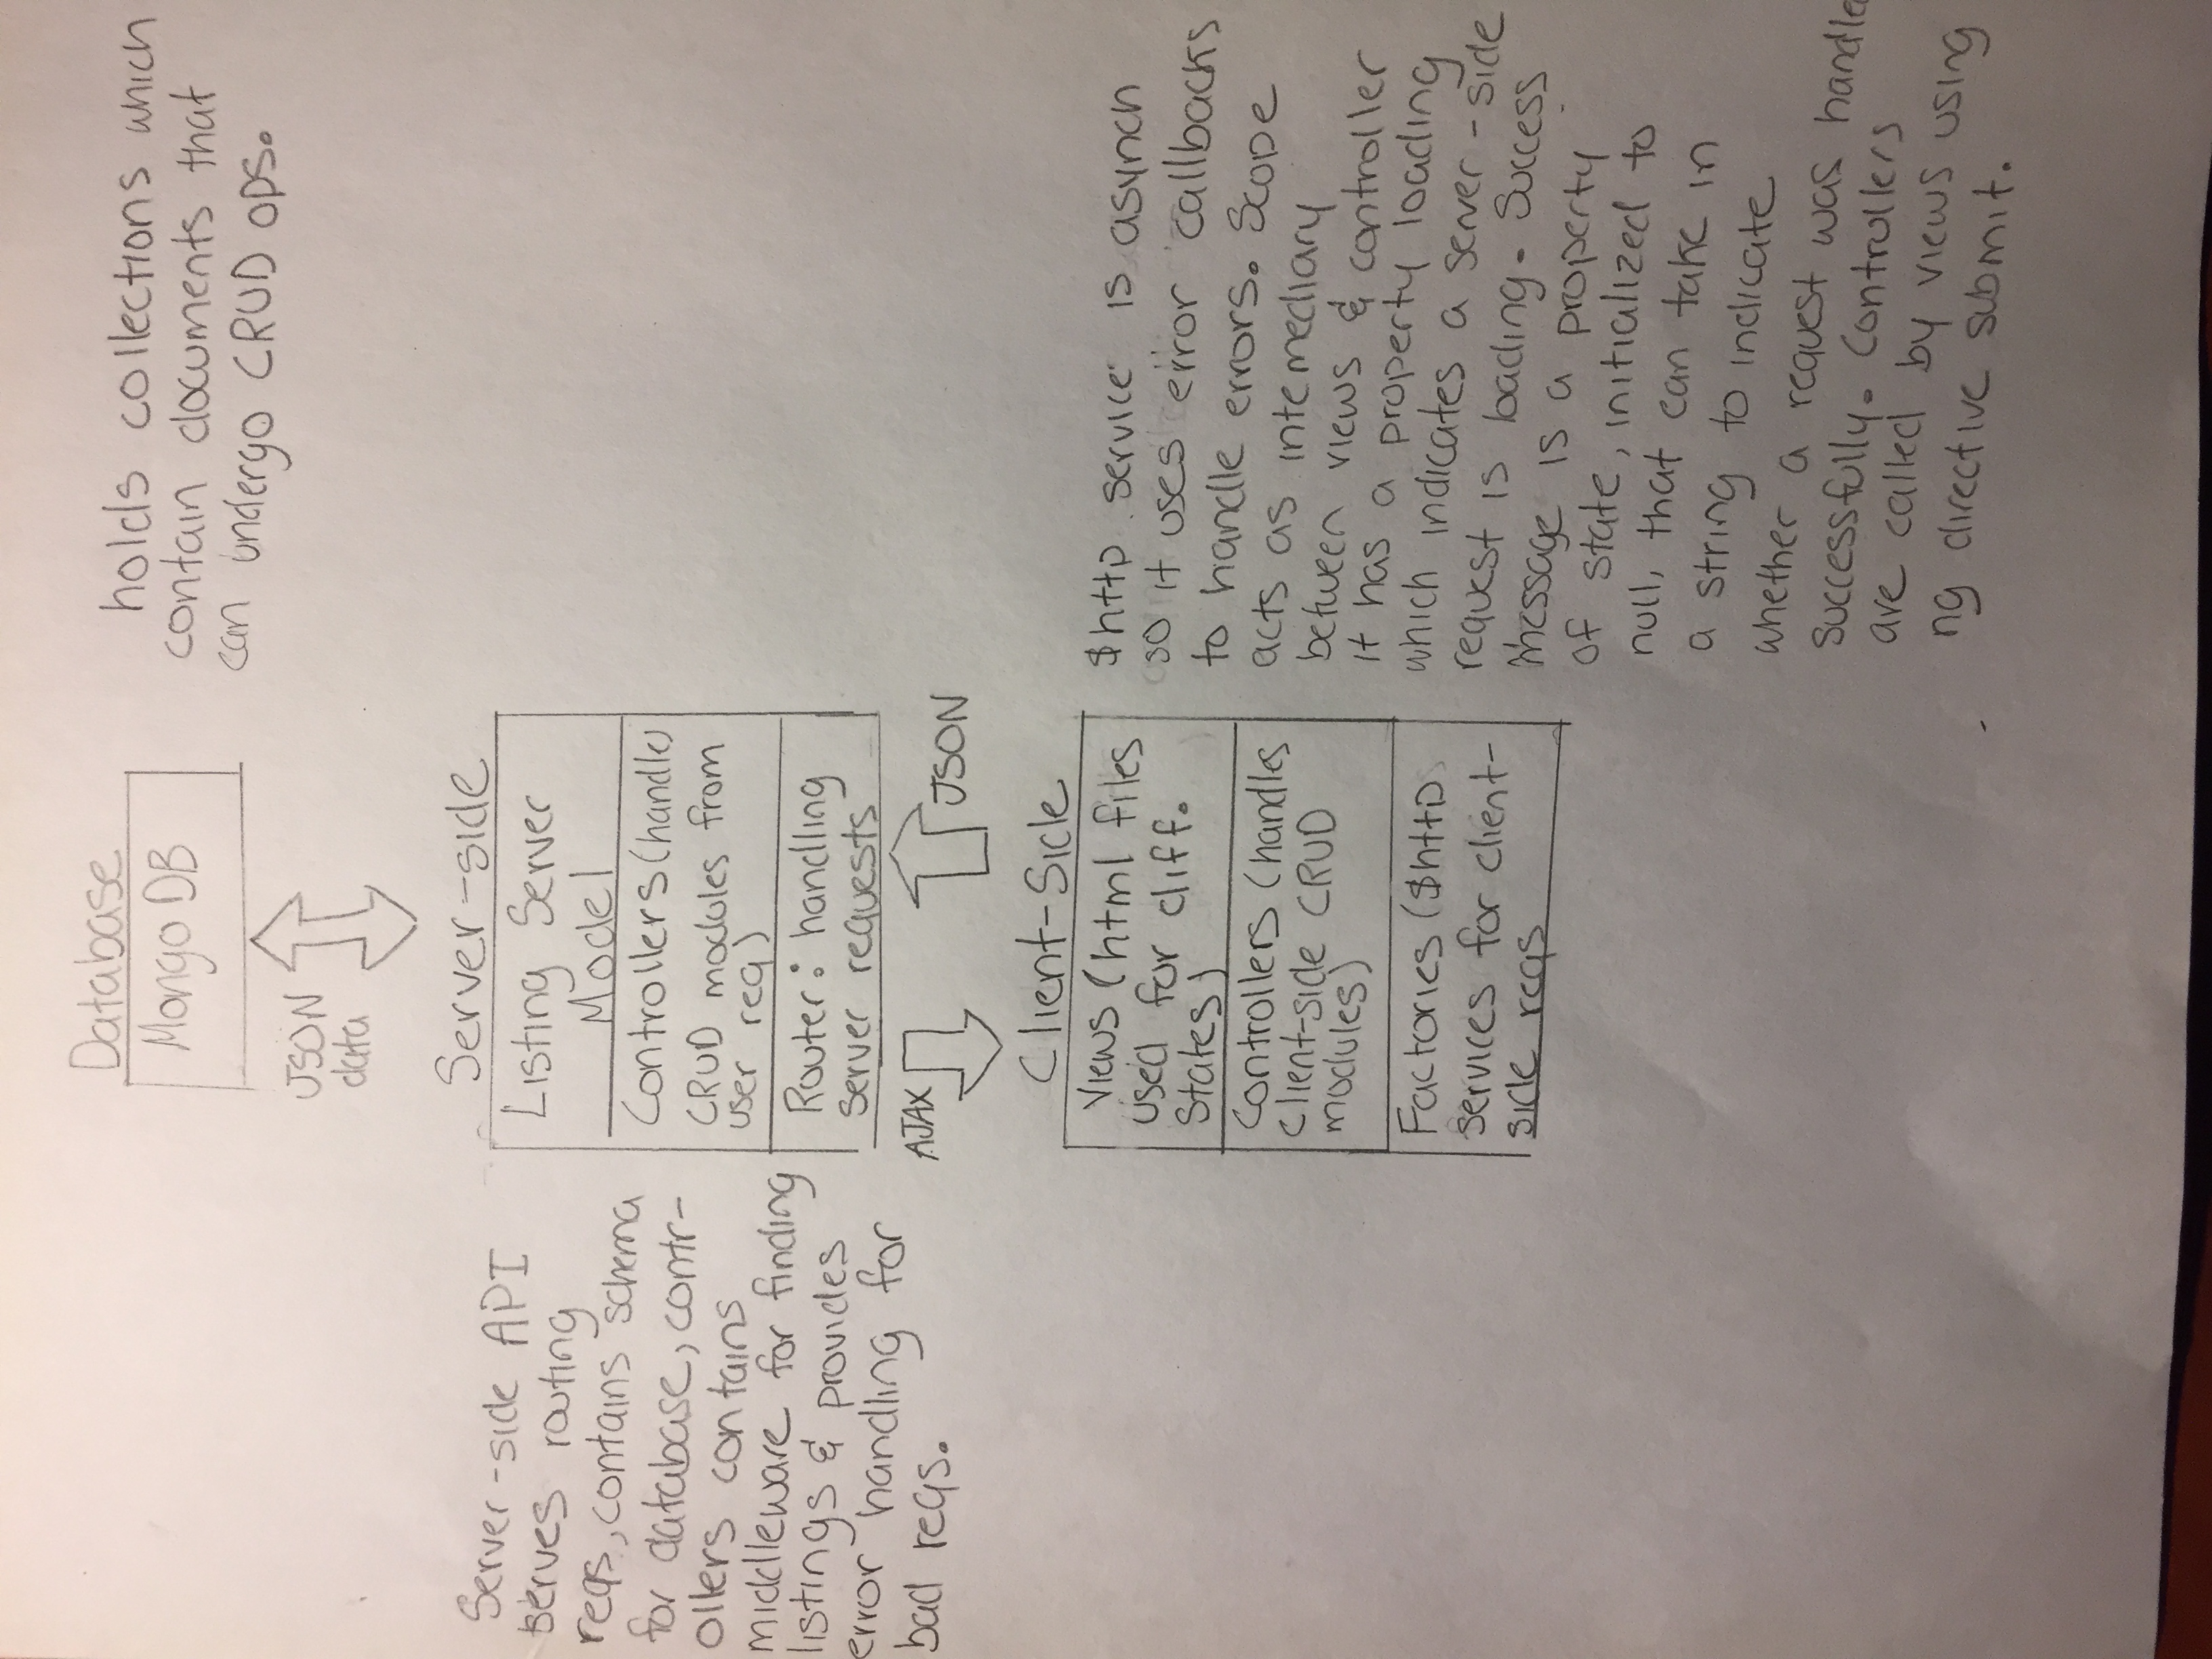 Database
Mongo DB
holds collections which
contain documents that
can undergo CRUD ops.
JSON
data
Server-side
Listing Server
Model
Controllers (handles
CRUD modules from
user req)
Router: handling
server requests
Server-side API
serves routing
reqs, contains schema
for database, contr-
ollers contains
middleware for finding
listings & provides
error handling for
bad reqs.
AJAX
JSON
Client-Side
Views (html files
used for diff.
States)
Controllers (handles
client-side CRUD
modules)
Factories ($http
services for client-
side reqs
$http service is asynch
so it uses error callbacks
to handle errors. Scope
acts as intemediary
between views & controller
it has a property loading
which indicates a server-side
request is loading. Success
message is a property
of state, initialized to
null, that can take in
a string to indicate
whether a request was handle
successfully. Controllers
are called by views using
ng directive submit.